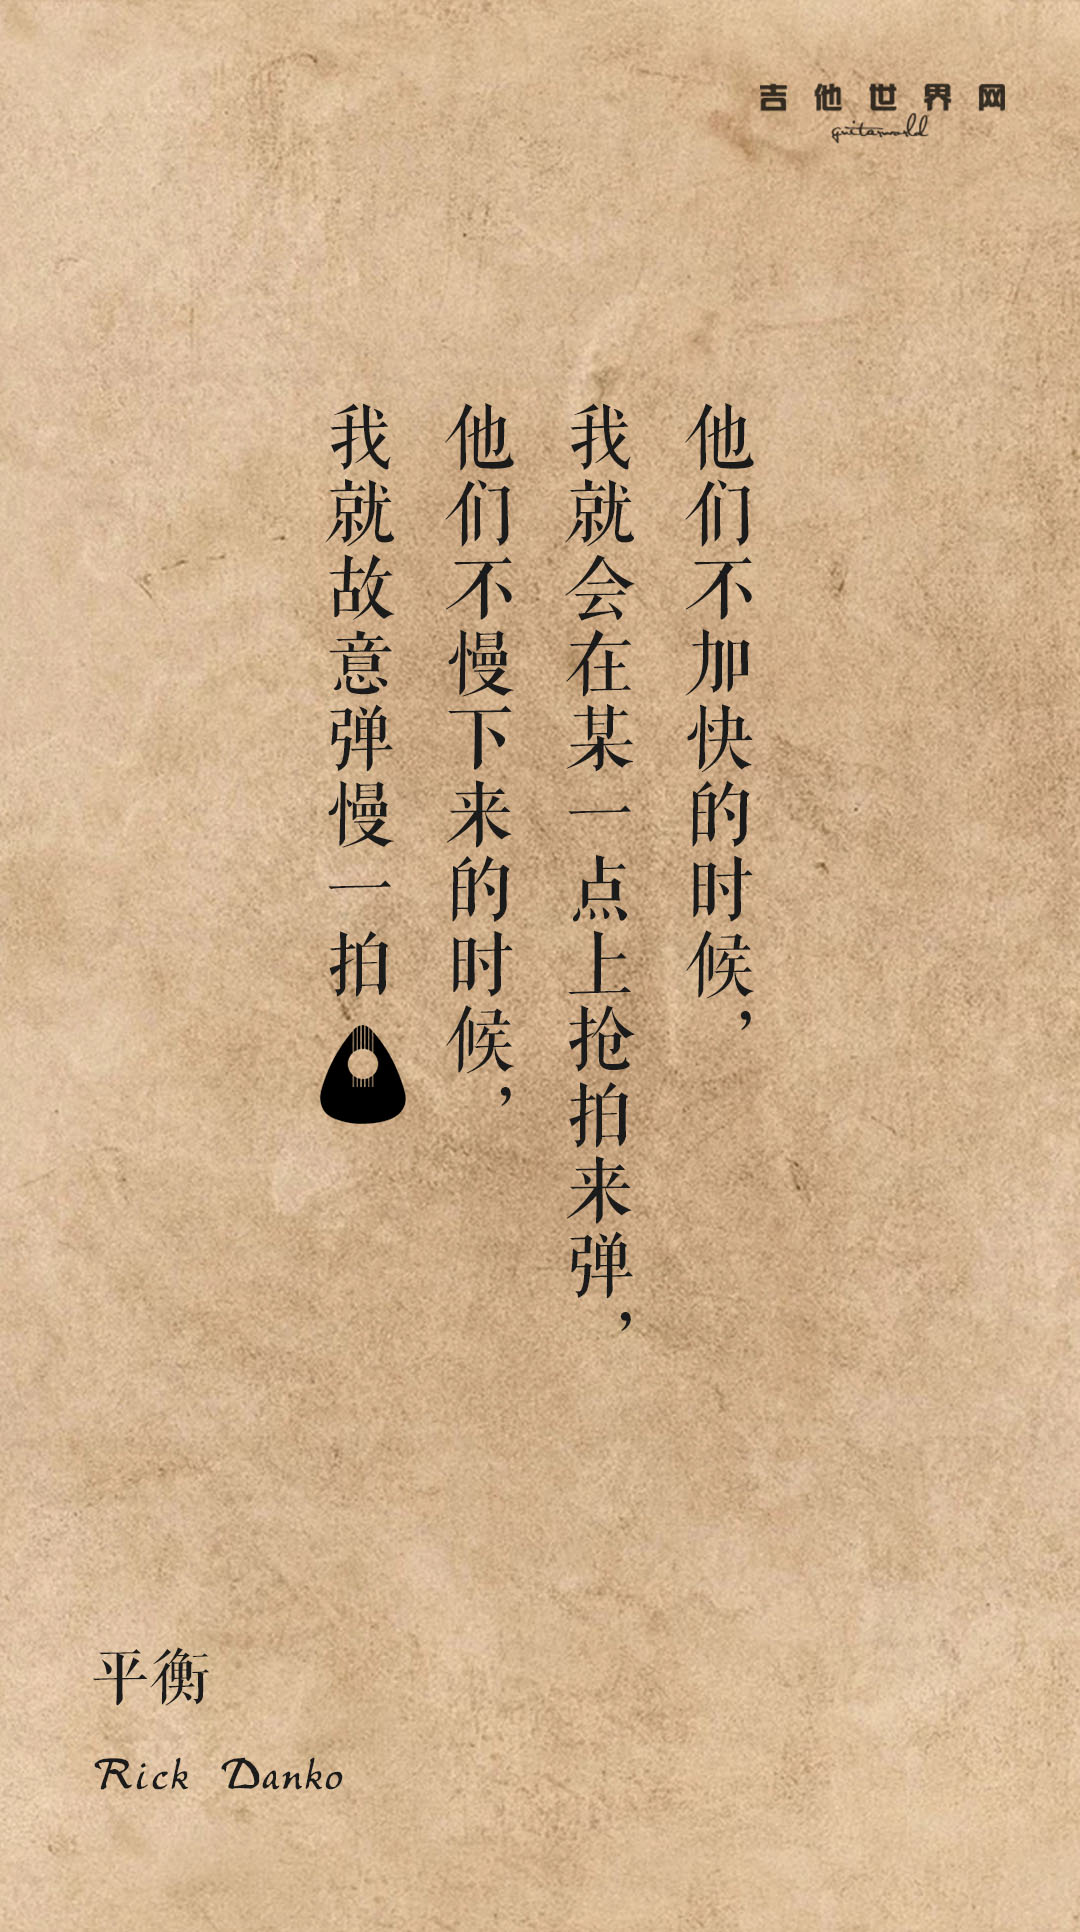 吉他世界网
guitarworld
他们不加快的时候，
我就会在某一点上抢拍来弹，
他们不慢下来的时候，
我就故意弹慢一拍
平衡
Rick Danko